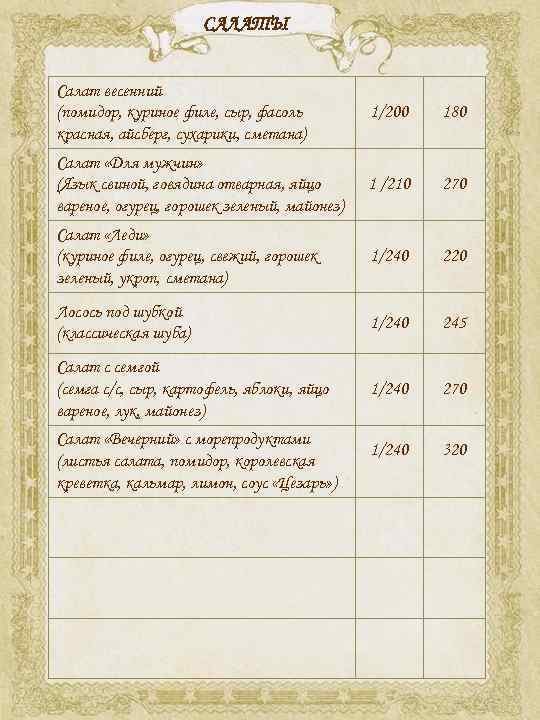 САЛАТЫ
Салат весенний
(помидор, куриное филе, сыр, фасоль
красная, айсберг, сухарики, сметана)
1/200
180
Салат «Для мужчин»
(Язык свиной, говядина отварная, яйцо
вареное, огурец, горошек зеленый, майонез)
1 /210
270
Салат «Леди»
(куриное филе, огурец, свежий, горошек
зеленый, укроп, сметана)
1/240
220
Лосось под шубкой
(классическая шуба)
1/240
245
Салат с семгой
(семга с/с, сыр, картофель, яблоки, яйцо
вареное, лук, майонез)
1/240
270
Салат «Вечерний» с морепродуктами
(листья салата, помидор, королевская
креветка, кальмар, лимон, соус «Цезарь» )
1/240
320